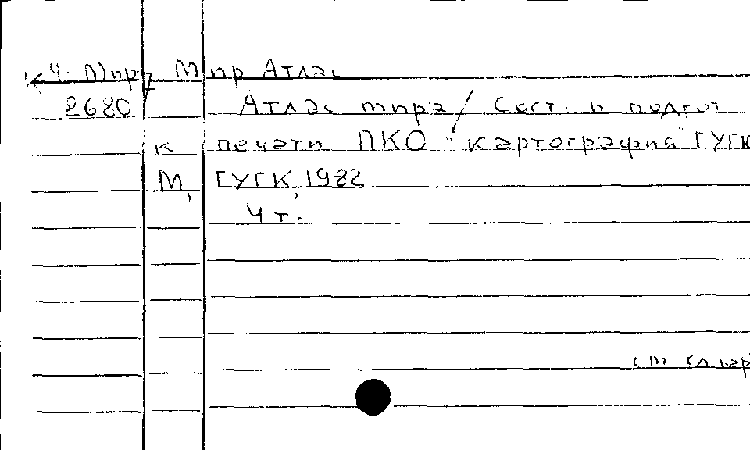 К4. Мира Мир Атлас
2680 Атлас мира / Сост. и подгот
к печати ПКО "Картография" ГУГК
М, ГУГК, 1982
4 т.
см